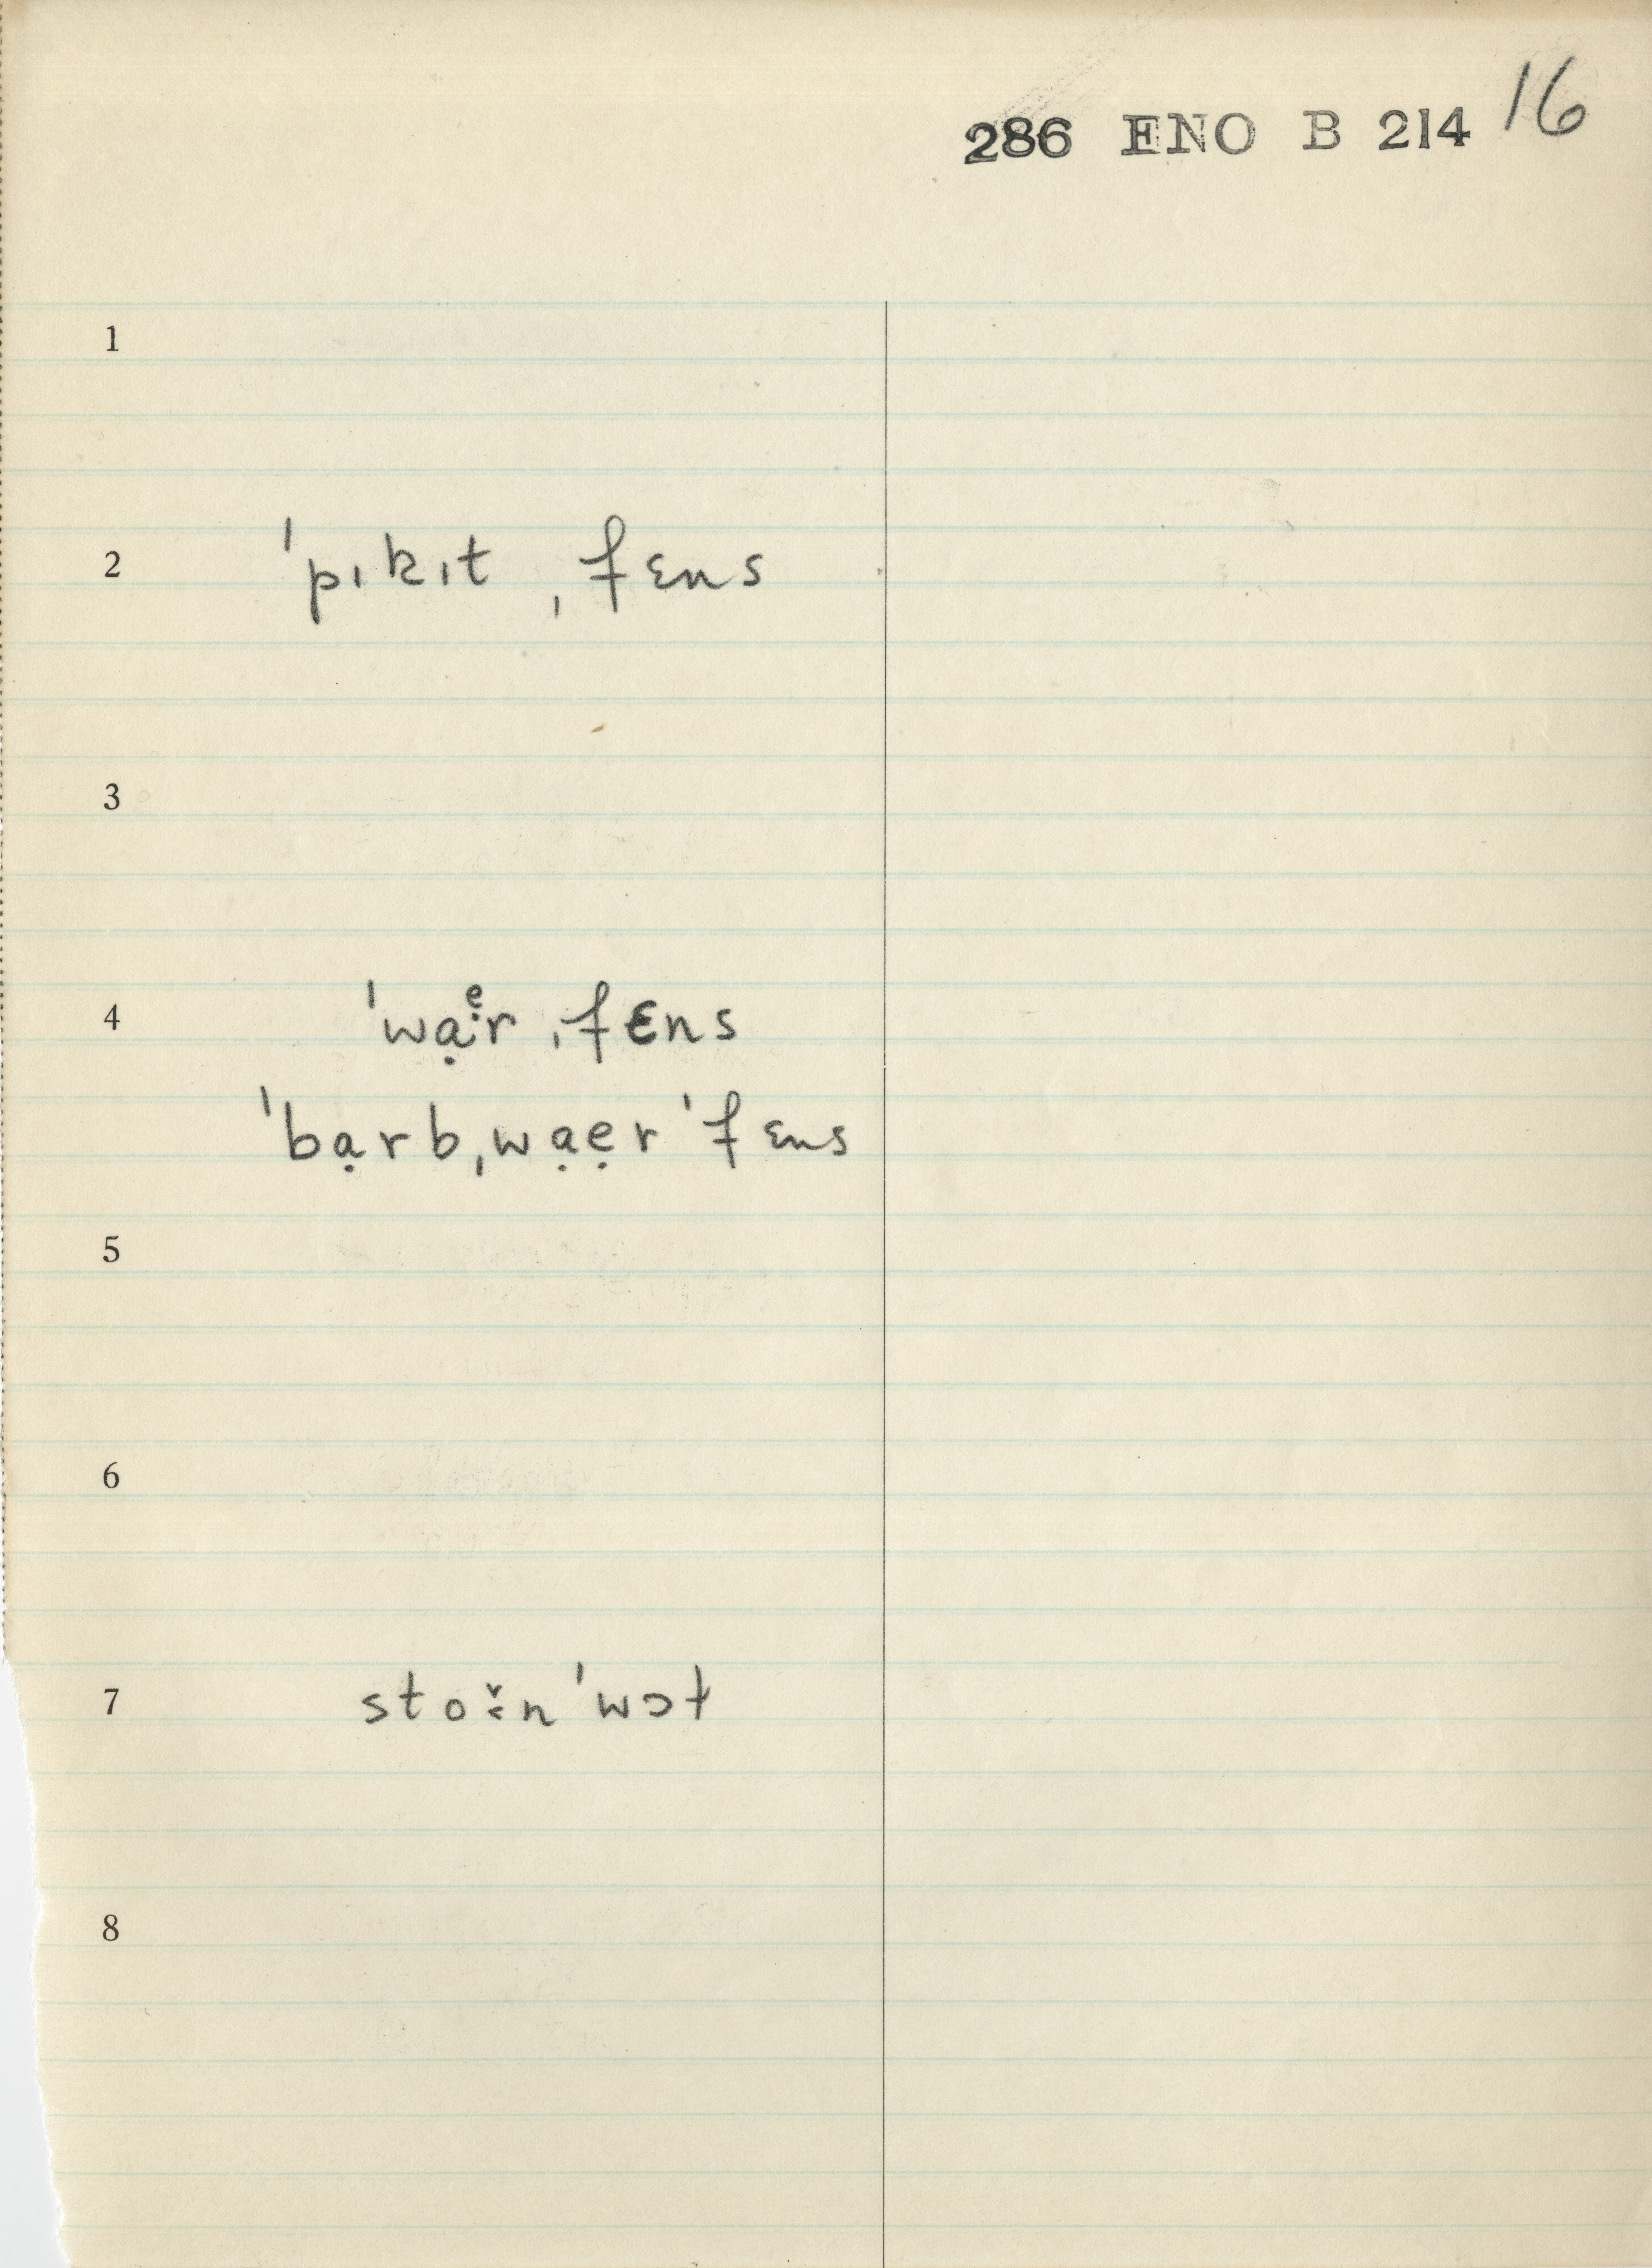 286 ENO B 214 16
1
2 ˈpɩkɩt ˌfɛns
3
4 ˈwạ·ᵉr ˌfɛns
ˈbạrbˌwạẹr ˈfɛns
5
6
7 sto̬·n ˈwɔɫ
8